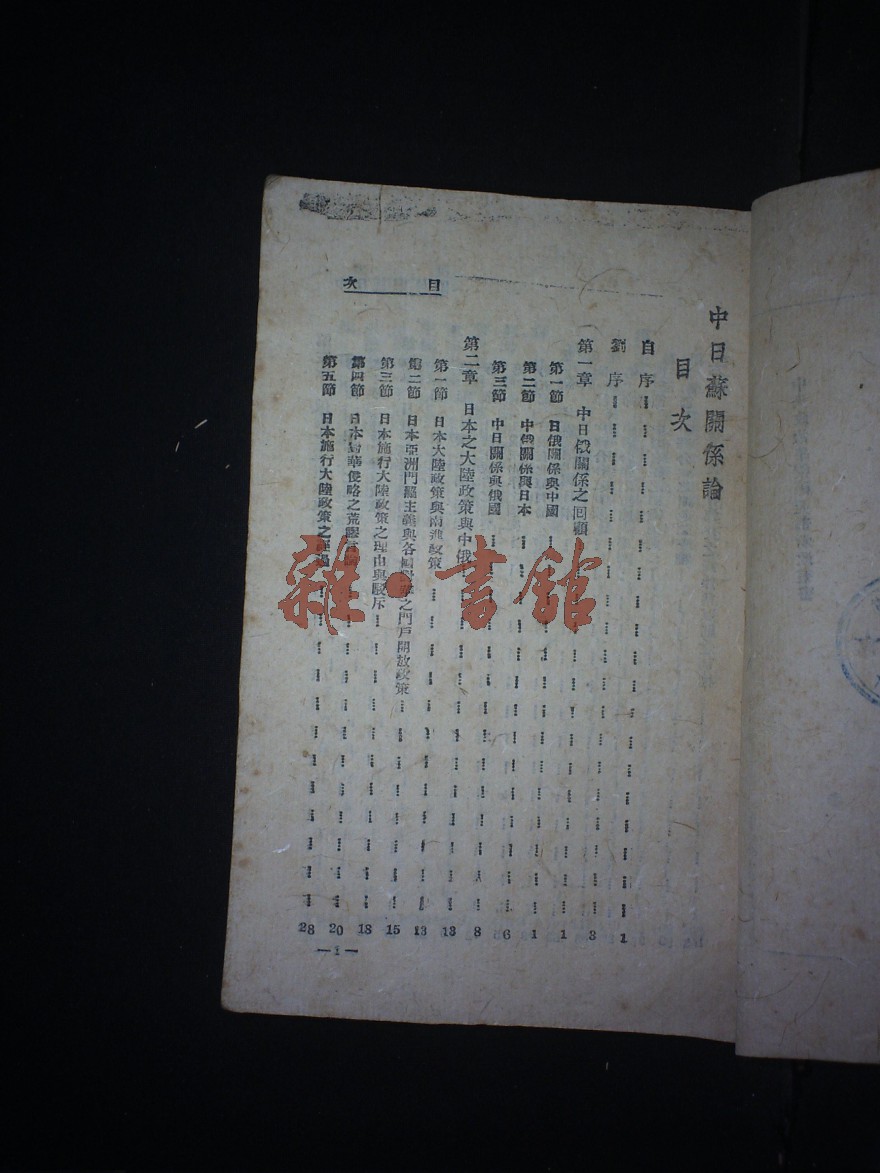 中日蘇關係論
目次
自序 1
劉序 3
第一章 中日俄關係之回顧 1
第一節 日俄關係與中國 1
第二節 中俄關係與日本 6
第三節 中日關係與俄國 8
第二章 日本之大陸政策與中俄 13
第一節 日本大陸政策與南進政策 13
第二節 日本亞洲門羅主義與各國 之門戶開放政策 15
第三節 日本施行大陸政策之理由與駁斥 18
第四節 日本對華侵略之荒謬 20
第五節 日本施行大陸政策之 28
目次
—1—
雜·書館